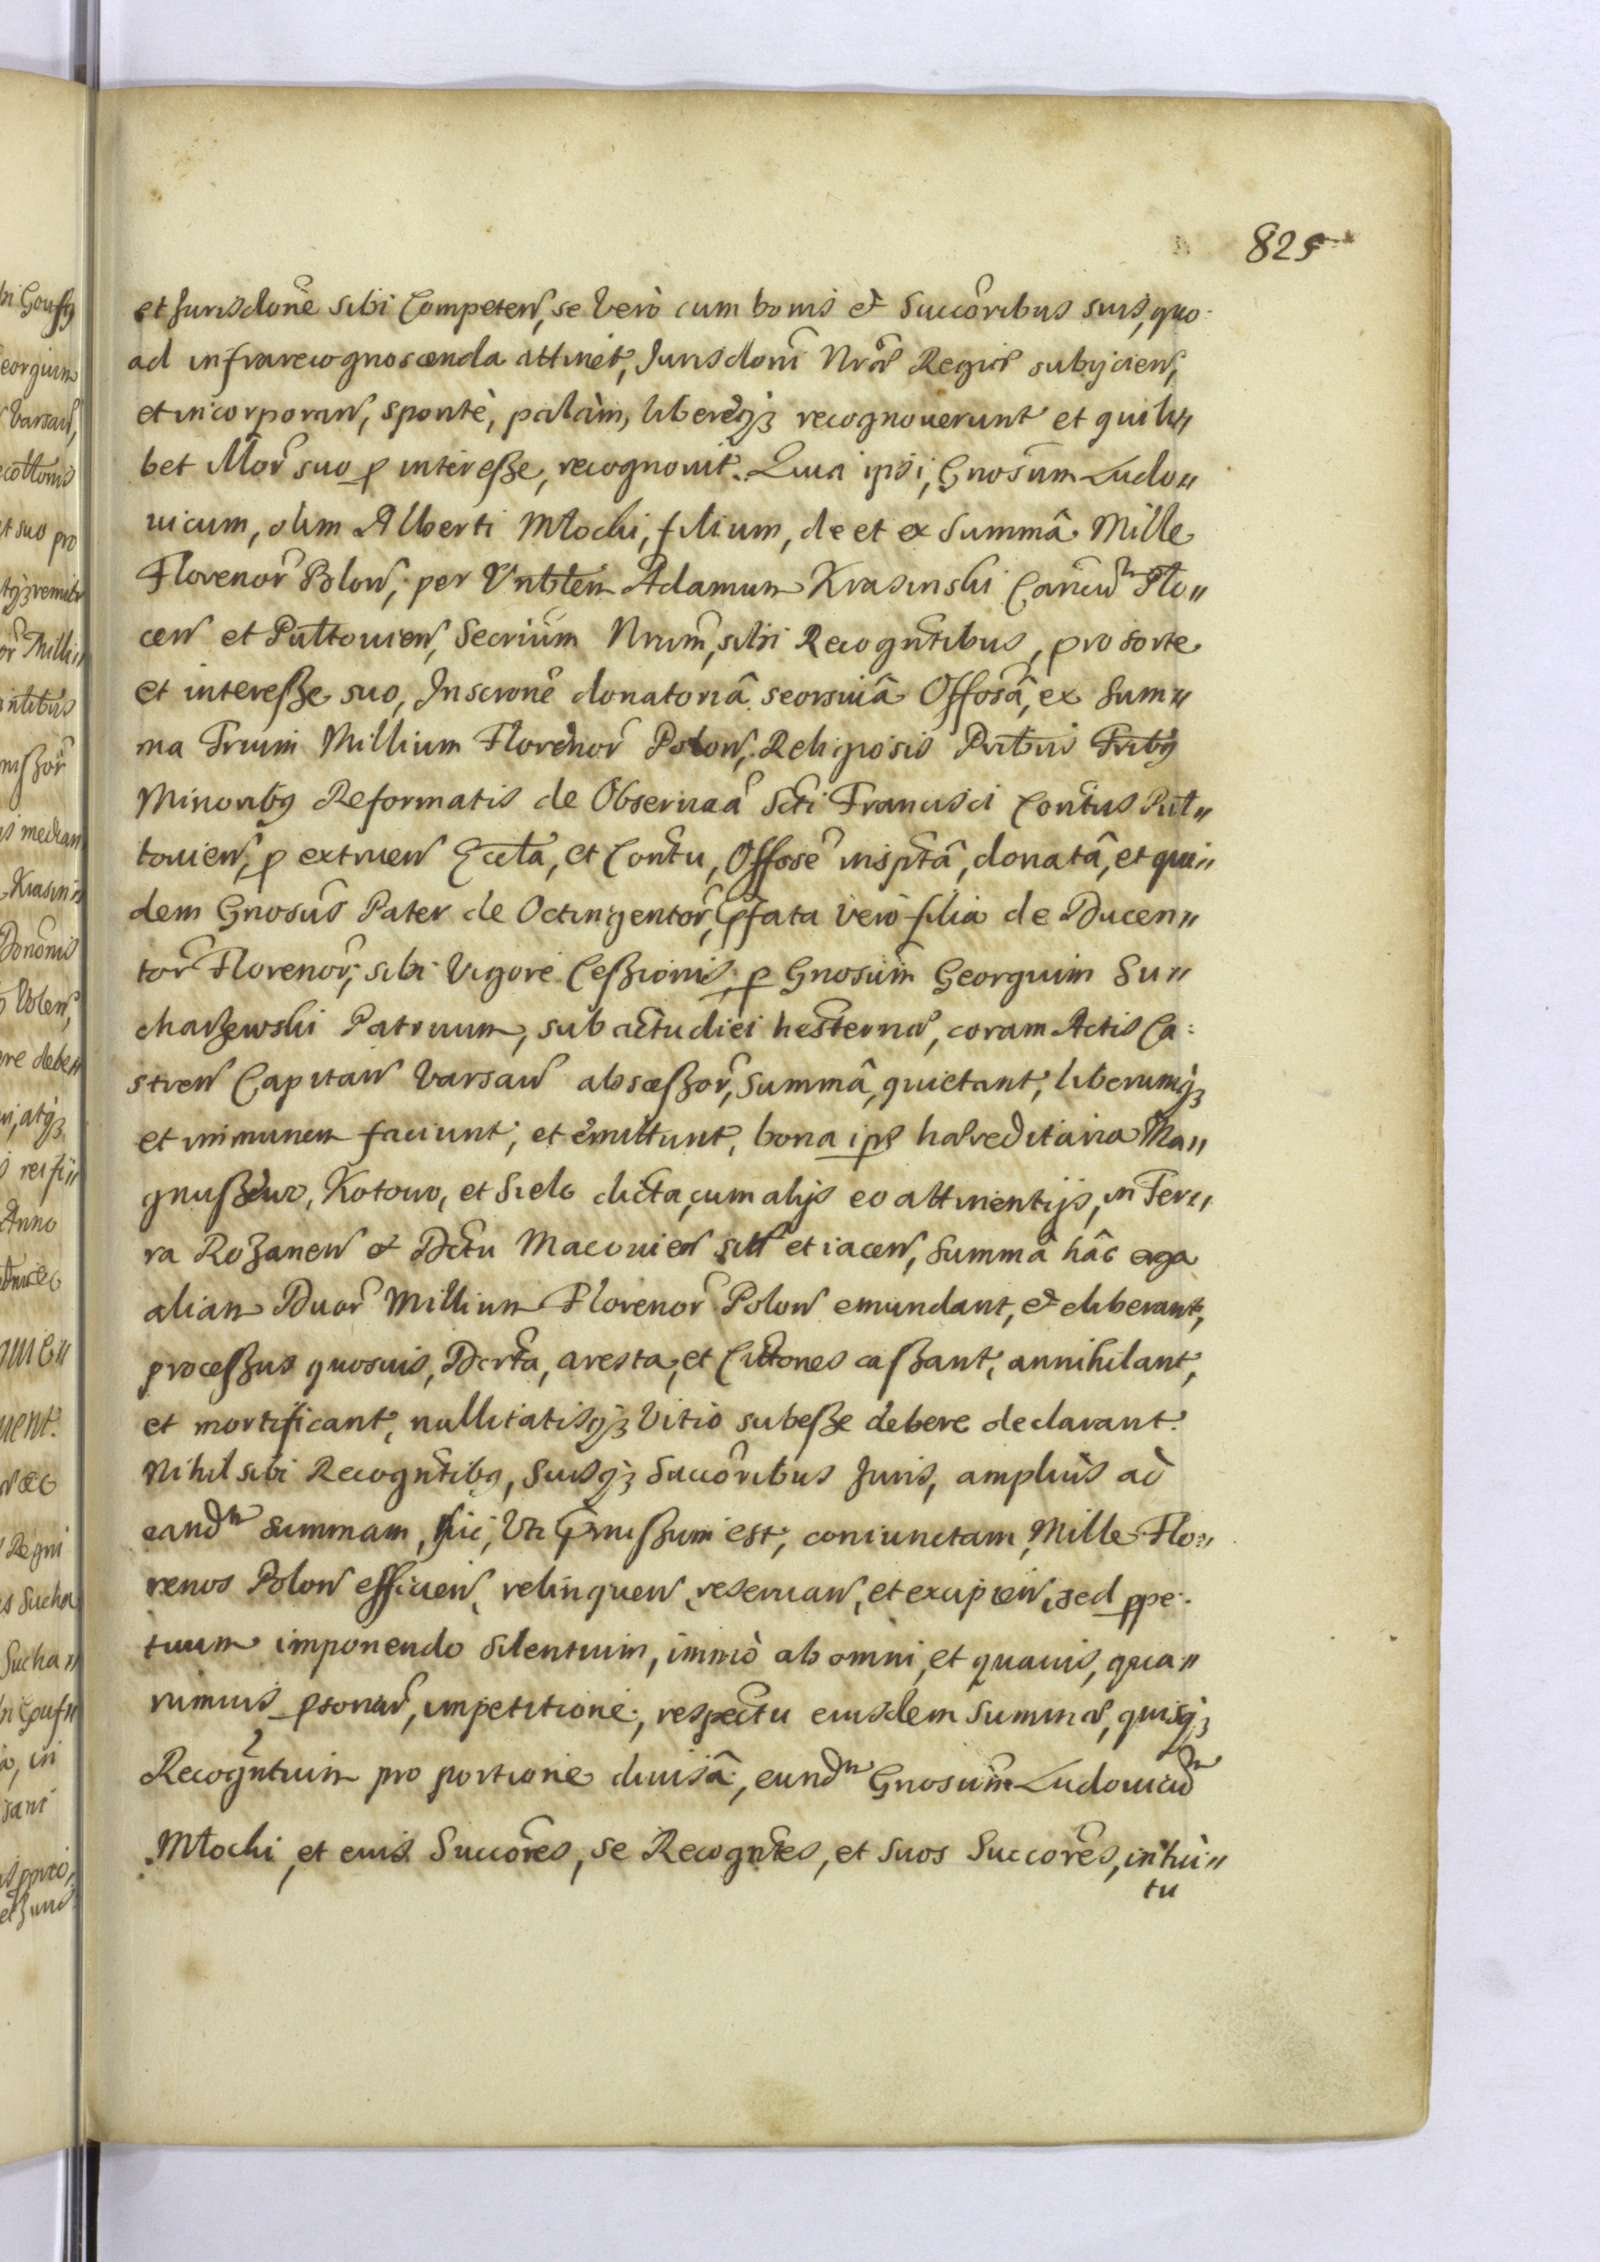 825
et Jurisdone sibi Competen, se vero cum bonis et Succoribus suis, quo
ad infrarecognoscenda attinet, Jurisdoni Nræ Regiæ subijcien,
et incorporan, spontè, palàm, libereq3 recognoverunt et quili„
bet Illor suo p interesse, recognovit. Quia ipsi, Gnosum Ludo„
vicum, olim Alberti Młocki, filium, de et ex Summâ Mille
Florenor Polon, per Vnblem Adamum Krasinski Cancum Plo„
cen et Pułtovien, Secrium Nrum, sibi Recogntibus, pro sorte
et interesse suo, Inscrone donatoriâ seorsivâ Offosâ, ex Sum„
ma Trium Millium Florenor Polon, Religiosis Pribus Fribq
Minoribq Reformatis de Observaa Scti Francisci Contus Puł„
tovien, p extruen Eccla, et Contu, Offose insptâ, donatâ, et qui„
dem Gnosus Pater de Octingentor, Pfata vero filia de Ducen„
tor Florenor, sibi Vigore Cessionis, p Gnosum Georgium Su„
charzewski Patruum, sub actu diei hesternæ, coram Actis Ca:
stren Capitan Varsav
Summâ, quietant, liberumq3
et immunem faciunt, et emittunt, bona ips hæreditaria Ma„
gnuszewo, Kotowo, et Sielc dicta, cum alijs eo attinentijs, in Ter„
ra Rozanen et Dctu Macovien sitt et iacen, Summâ hâc erga
aliam Duor Millium Florenor Polon emundant, et eliberant,
processus quosvis, Dcrta, aresta, et Cittones cassant, annihilant,
et mortificant, nullitatisq3 Vitio subesse debere declarant.
Nihil sibi Recogntibq, Suisq3 Succoribus Juris, ampliùs ad
eandm Summam, hic, Vti Pmissum est, coniunctam, Mille Flo„
renos Polon efficien, relinquen, reservan, et excipien, sed ppe
tuum imponendo silentium, immò ab omni, et quavis, qua„
rumvis psonar, impetitione, respectu eiusdem Summæ, quisq3
Recogntium pro portione divisâ, eundm Gnosum Ludovicum
Młocki, et eius Succores, se Recogntes, et suos Succores, intui„
tu